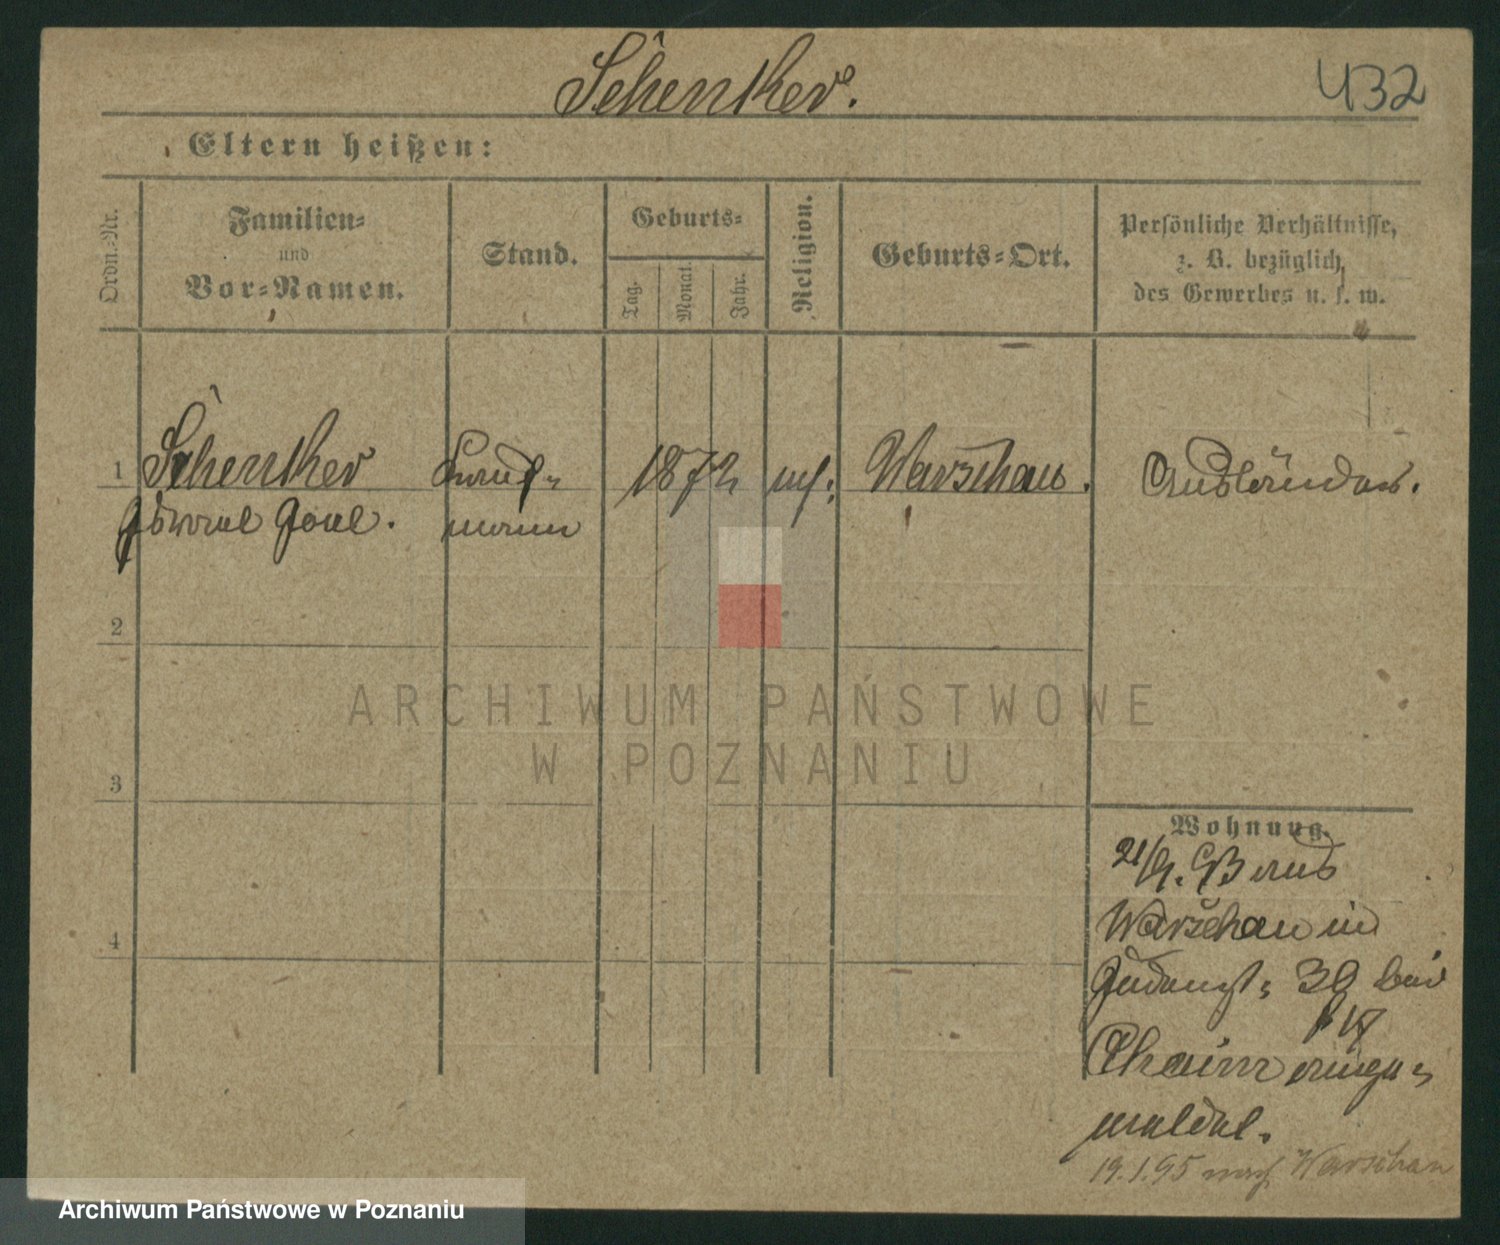 Schenker.
432
Eltern heißen:
Ordn.-Nr.
Familien-
und
Vor-Namen.
Stand.
Geburts-
Tag.
Monat.
Jahr.
Religion.
Geburts-Ort.
Persönliche Verhältnisse,
z. B. bezüglich
des Gewerbes u. s. w.
1
Schenker
Israel Joel.
Kauf-
mann
1872
Warschau.
Ausländer.
2
3
4
Wohnung.
21/9. 93 aus
Warschau in
Judenst: 30 bei
Chaim ange-
meldet.
19.1.95 nach Warschau
ARCHIWUM PAŃSTWOWE
W POZNANIU
Archiwum Państwowe w Poznaniu